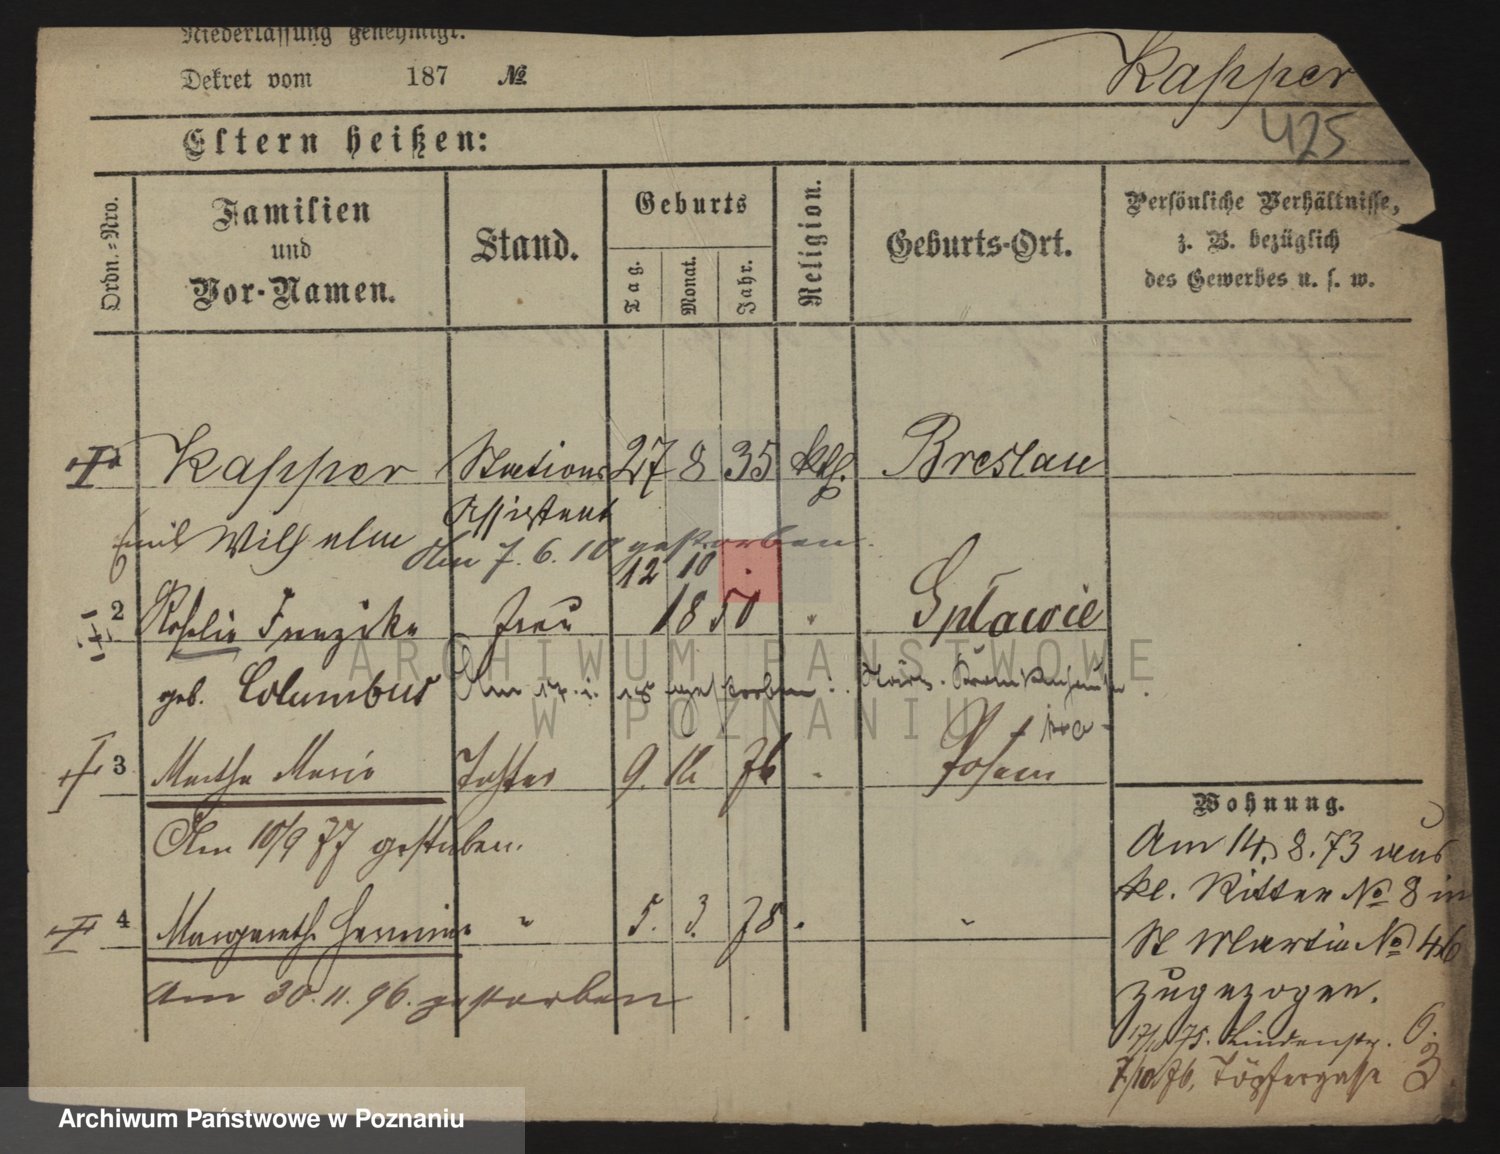 Niederlassung genehmigt.
Dekret vom 187 №
Kapper
425
Eltern heißen:
Ordn.=Nro.
Familien
und
Vor-Namen.
Stand.
Geburts
Tag.
Monat.
Jahr.
Religion.
Geburts-Ort.
Persönliche Verhältnisse,
z. B. bezüglich
des Gewerbes u. s. w.
Kapper Stations 27 8 35 kth. Breslau
Emil Wilhelm Assistent
Am 7. 6. 10 gestorben.
12 10
2 Rosalie Franziska Frau 1850 " Spławie
geb. Columbus Am gestorben
3 Martha Marie Tochter 9. 10. 76 " Posen
Am 10/9 77 gestorben.
4 Margareth Hermine " 5. 3. 78 " "
Am 30. 11. 96. gestorben
Wohnung.
Am 14. 8. 73 aus
kl. Ritter № 8 in
St Martin № 46
zugezogen.
17/10 75. Lindenstr. 6.
7/10 76. Töpfergasse 3
ARCHIWUM PAŃSTWOWE
W POZNANIU
Archiwum Państwowe w Poznaniu